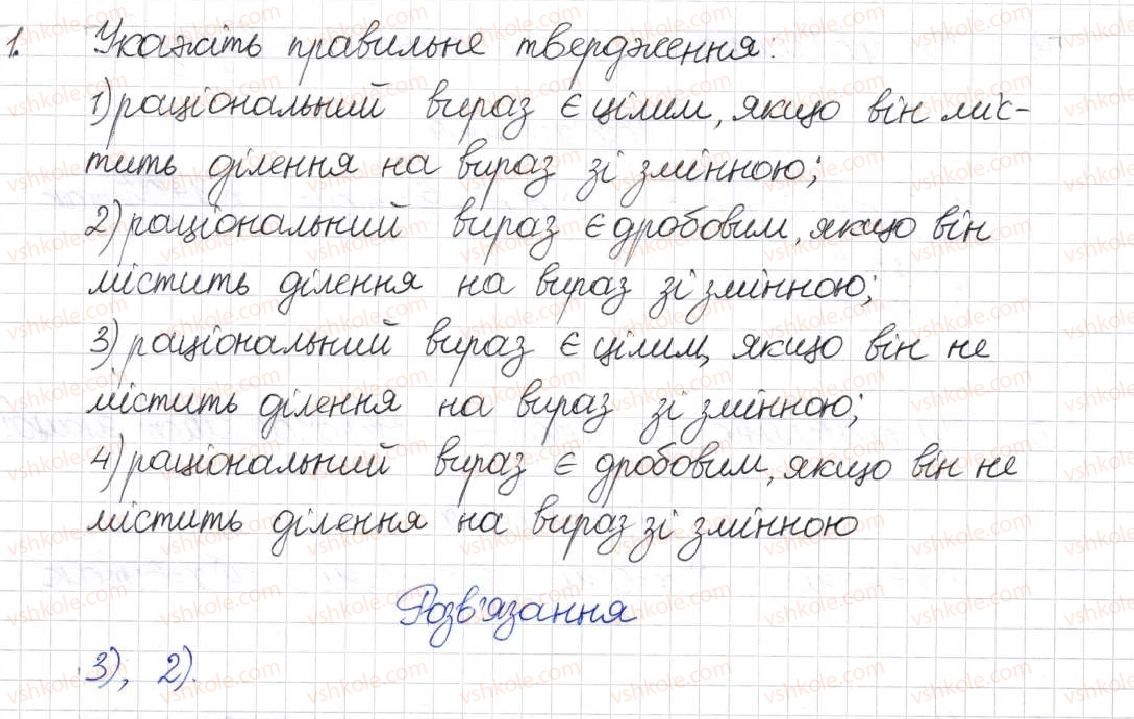 1. Укажіть правильне твердження:
1) раціональний вираз є цілим, якщо він міс-
тить ділення на вираз зі змінною;
2) раціональний вираз є дробовим, якщо він
містить ділення на вираз зі змінною;
3) раціональний вираз є цілим, якщо він не
містить ділення на вираз зі змінною;
4) раціональний вираз є дробовим, якщо він не
містить ділення на вираз зі змінною
Розв'язання
3), 2).